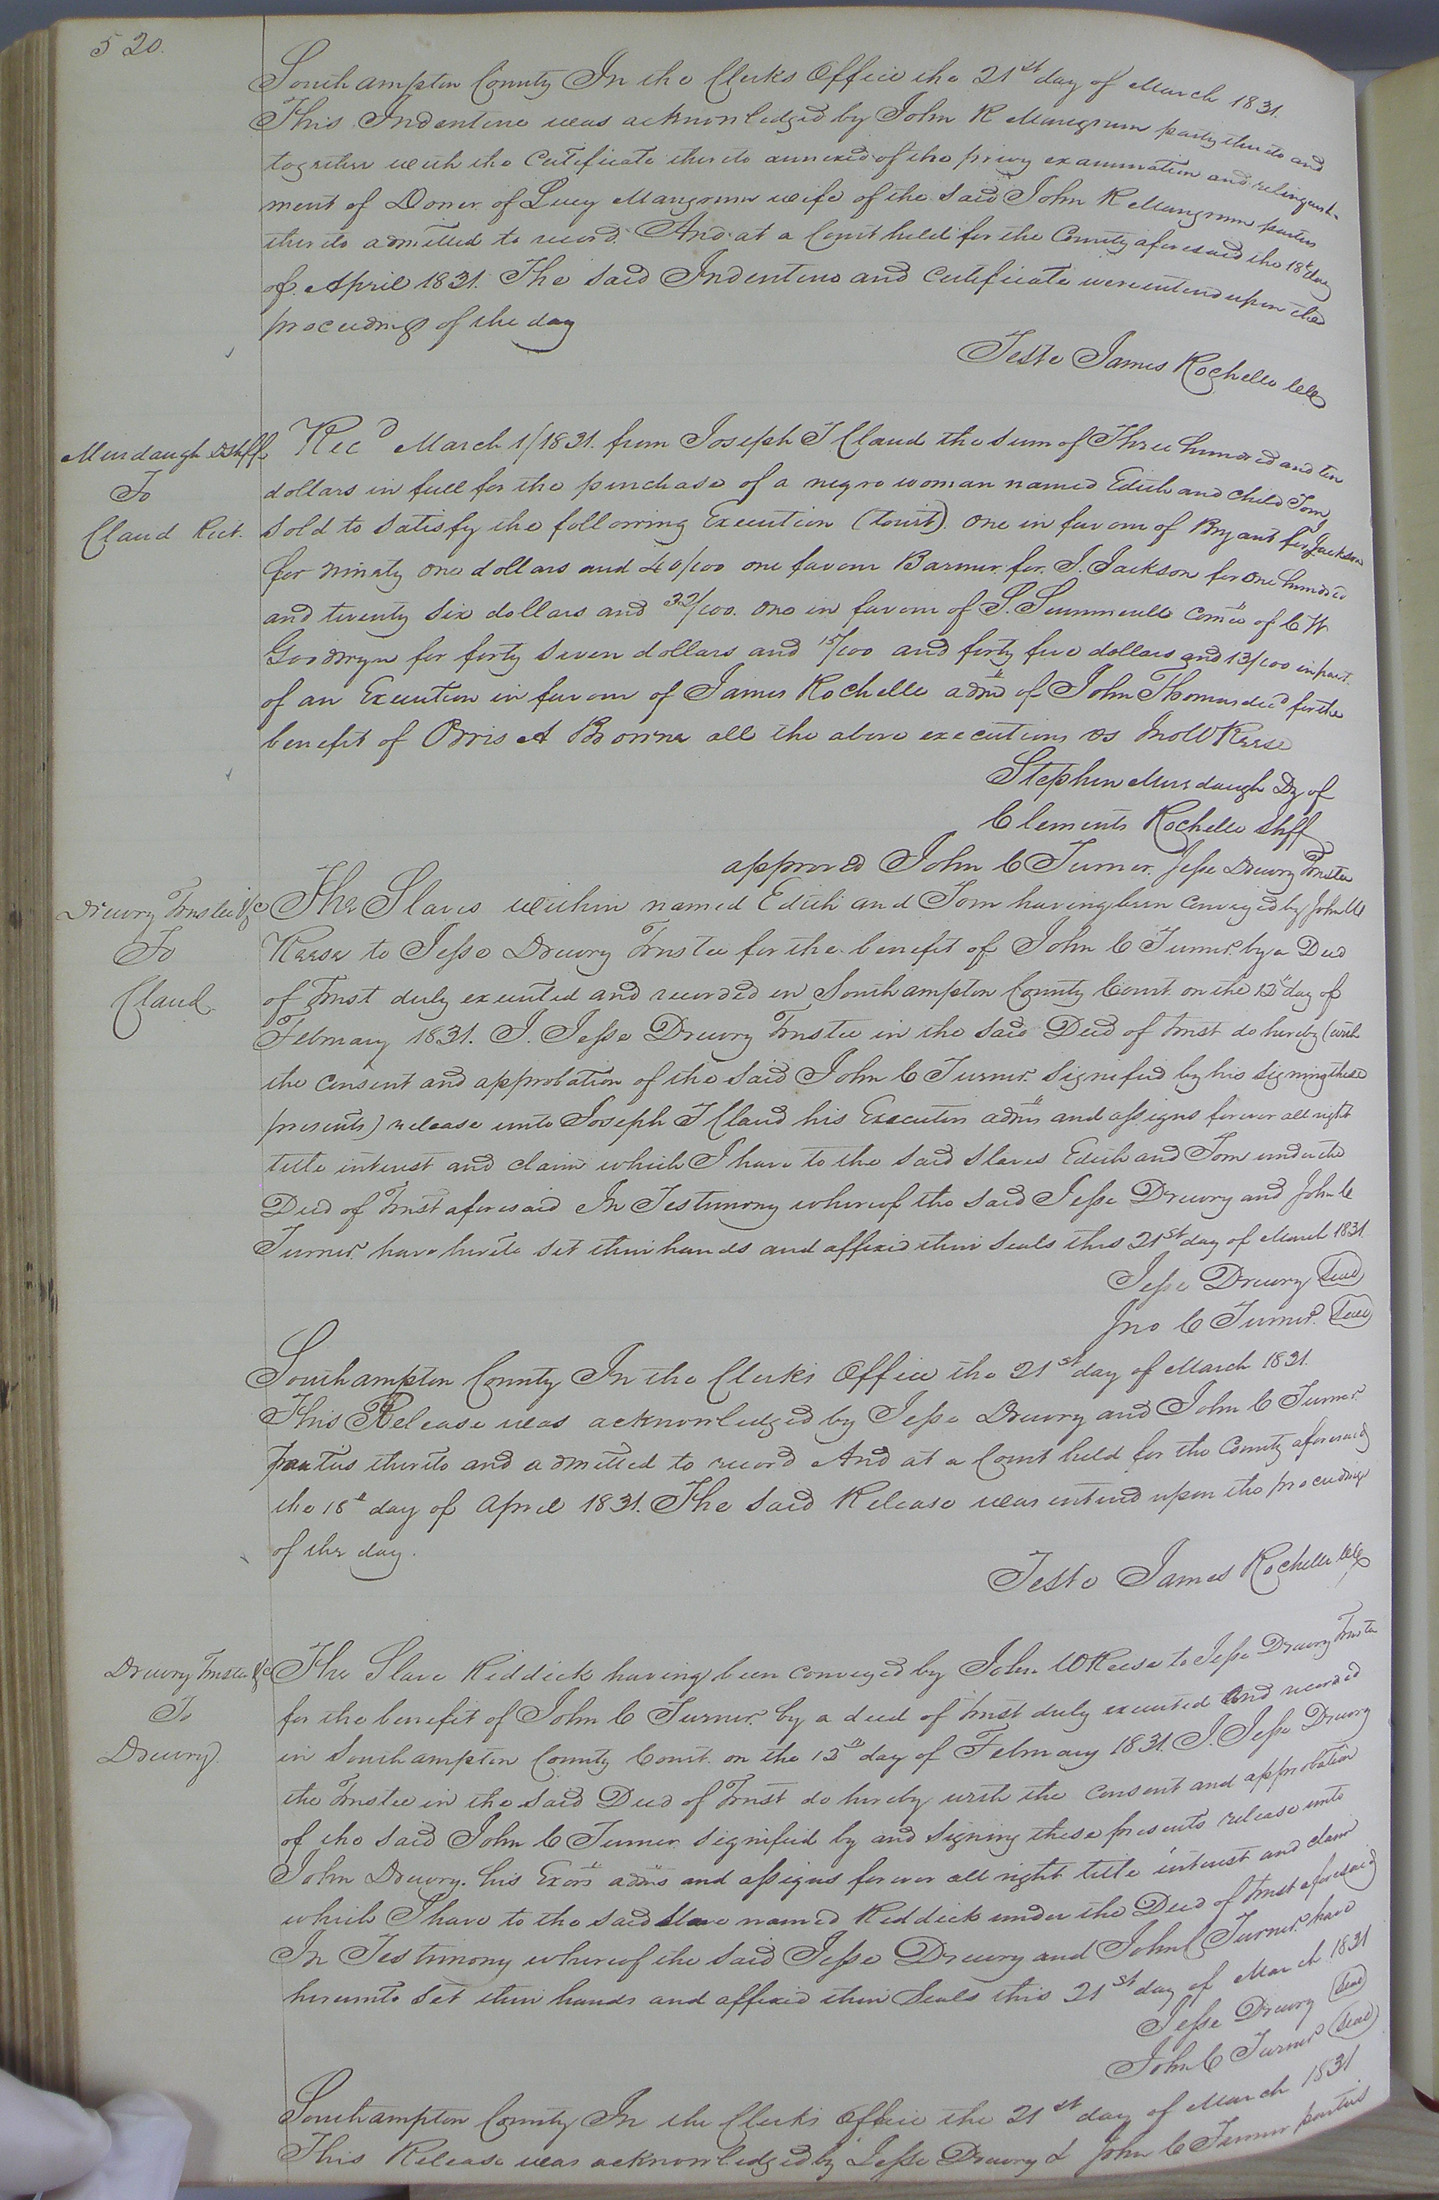 520.
Southampton County In the Clerks Office the 21st day of March 1831.
This Indenture was acknowledged by John R Mangrum party thereto and
together with the Certificate thereto annexed of the privy examination and relinquish-
ment of Dower of Lucy Mangrum wife of the said John R Mangrum parties
thereto admitted to record. And at a Court held for the County aforesaid the 18th day
of April 1831. The said Indenture and Certificate were entered upon the
proceedings of the day
Teste James Rochelle Clk
Murdaugh D Shff
To
Claud Rect.
Recd March 1/1831. from Joseph T Claud the sum of Three hundred and ten
dollars in full for the purchase of a negro woman named Edith and child Tom
sold to satisfy the following Execution (towit). One in favour of Bryant for Jackson
for ninety one dollars and 40/100 one favour Barmer for J. Jackson for one hundred
and twenty six dollars and 32/100. one in favour of S. Summerell Comee of C W
Goodwyn for forty seven dollars and 15/100 and forty five dollars and 13/100 in part
of an Execution in favour of James Rochelle admr of John Thomas decd for the
benefit of Orris A Browne all the above executions vs Jno W Reese
Stephen Murdaugh Dy of
Clements Rochelle Shff
approved John C Turner. Jesse Drewry Trustee
Drewry Trustee &c
To
Claud.
The Slaves within named Edith and Tom having been conveyed by John W
Reese to Jesse Drewry Trustee for the benefit of John C Turner by a Deed
of Trust duly executed and recorded in Southampton County Court on the 12th day of
February 1831. I. Jesse Drewry Trustee in the said Deed of Trust do hereby (with
the consent and approbation of the said John C Turner. signified by his signing these
presents) release unto Joseph T Claud his Executors admrs and assigns forever all right
title interest and claim which I have to the said slaves Edith and Tom under the
Deed of Trust aforesaid In Testimony whereof the said Jesse Drewry and John C
Turner have hereto set their hands and affixed their seals this 21st day of March 1831.
Jesse Drewry Seal
Jno C Turner. Seal
Southampton County In the Clerk's Office the 21st day of March 1831.
This Release was acknowledged by Jesse Drewry and John C Turner
parties thereto and admitted to record And at a Court held for the County aforesaid
the 18th day of April 1831. The said Release was entered upon the proceedings
of the day.
Teste James Rochelle Clk
Drewry Trustee &c
To
Drewry.
The Slave Reddick having been conveyed by John W Reese to Jesse Drewry Trustee
for the benefit of John C Turner. by a deed of trust duly executed and recorded
in Southampton County Court. on the 12th day of February 1831. I. Jesse Drewry
the Trustee in the said Deed of Trust do hereby with the consent and approbation
of the said John C Turner signified by and signing these presents release unto
John Drewry. his Exors admrs and assigns forever all right title interest and claim
which I have to the said slave named Reddick under the Deed of Trust aforesaid
In Testimony whereof the said Jesse Drewry and John C Turner have
hereunto set their hands and affixed their Seals this 21st day of March 1831
Jesse Drewry Seal
John C Turner Seal
Southampton County In the Clerks Office the 21st day of March 1831
This Release was acknowledged by Jesse Drewry & John C Turner parties